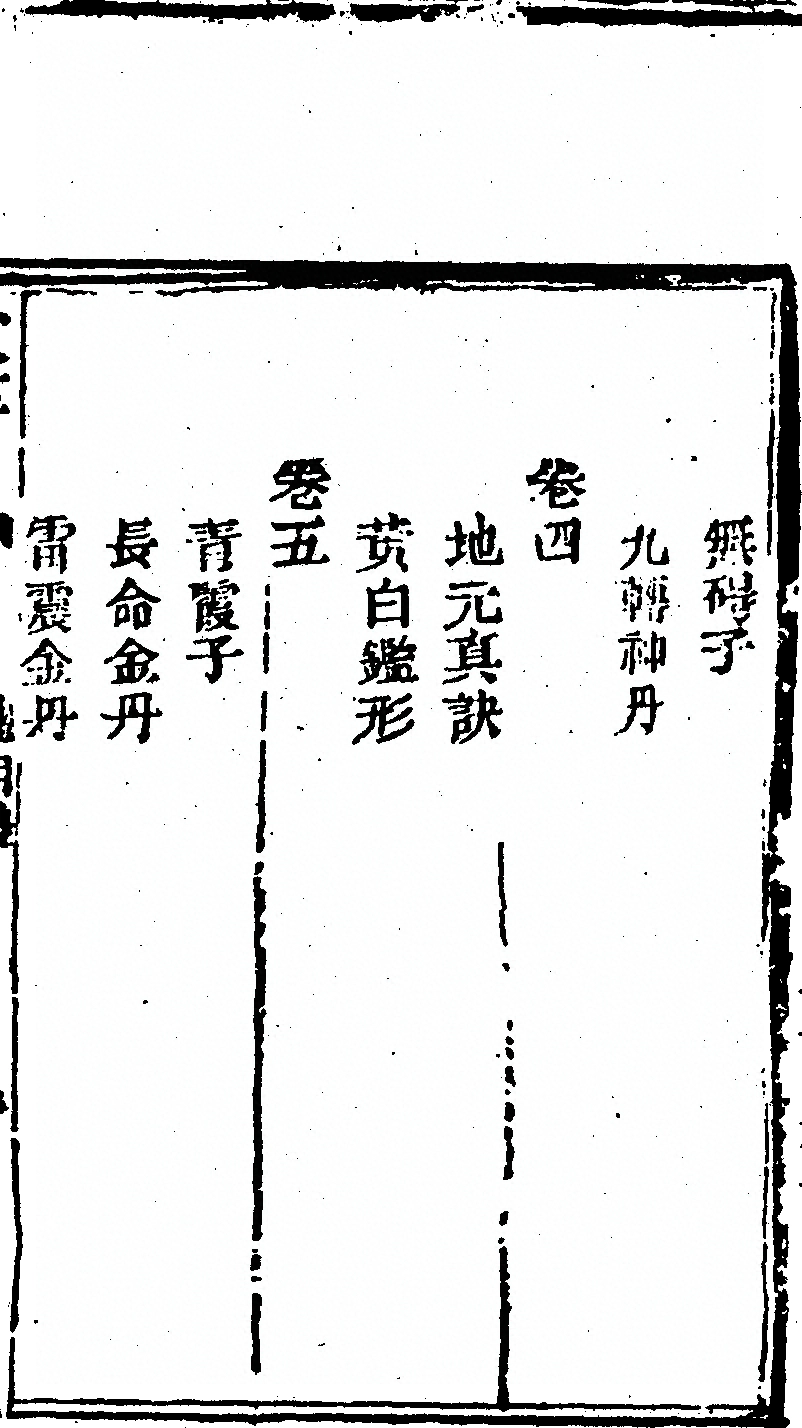 無碍子
九轉神丹
卷四
地元真訣
黃白鑑形
卷五
青霞子
長命金丹
雷震金丹